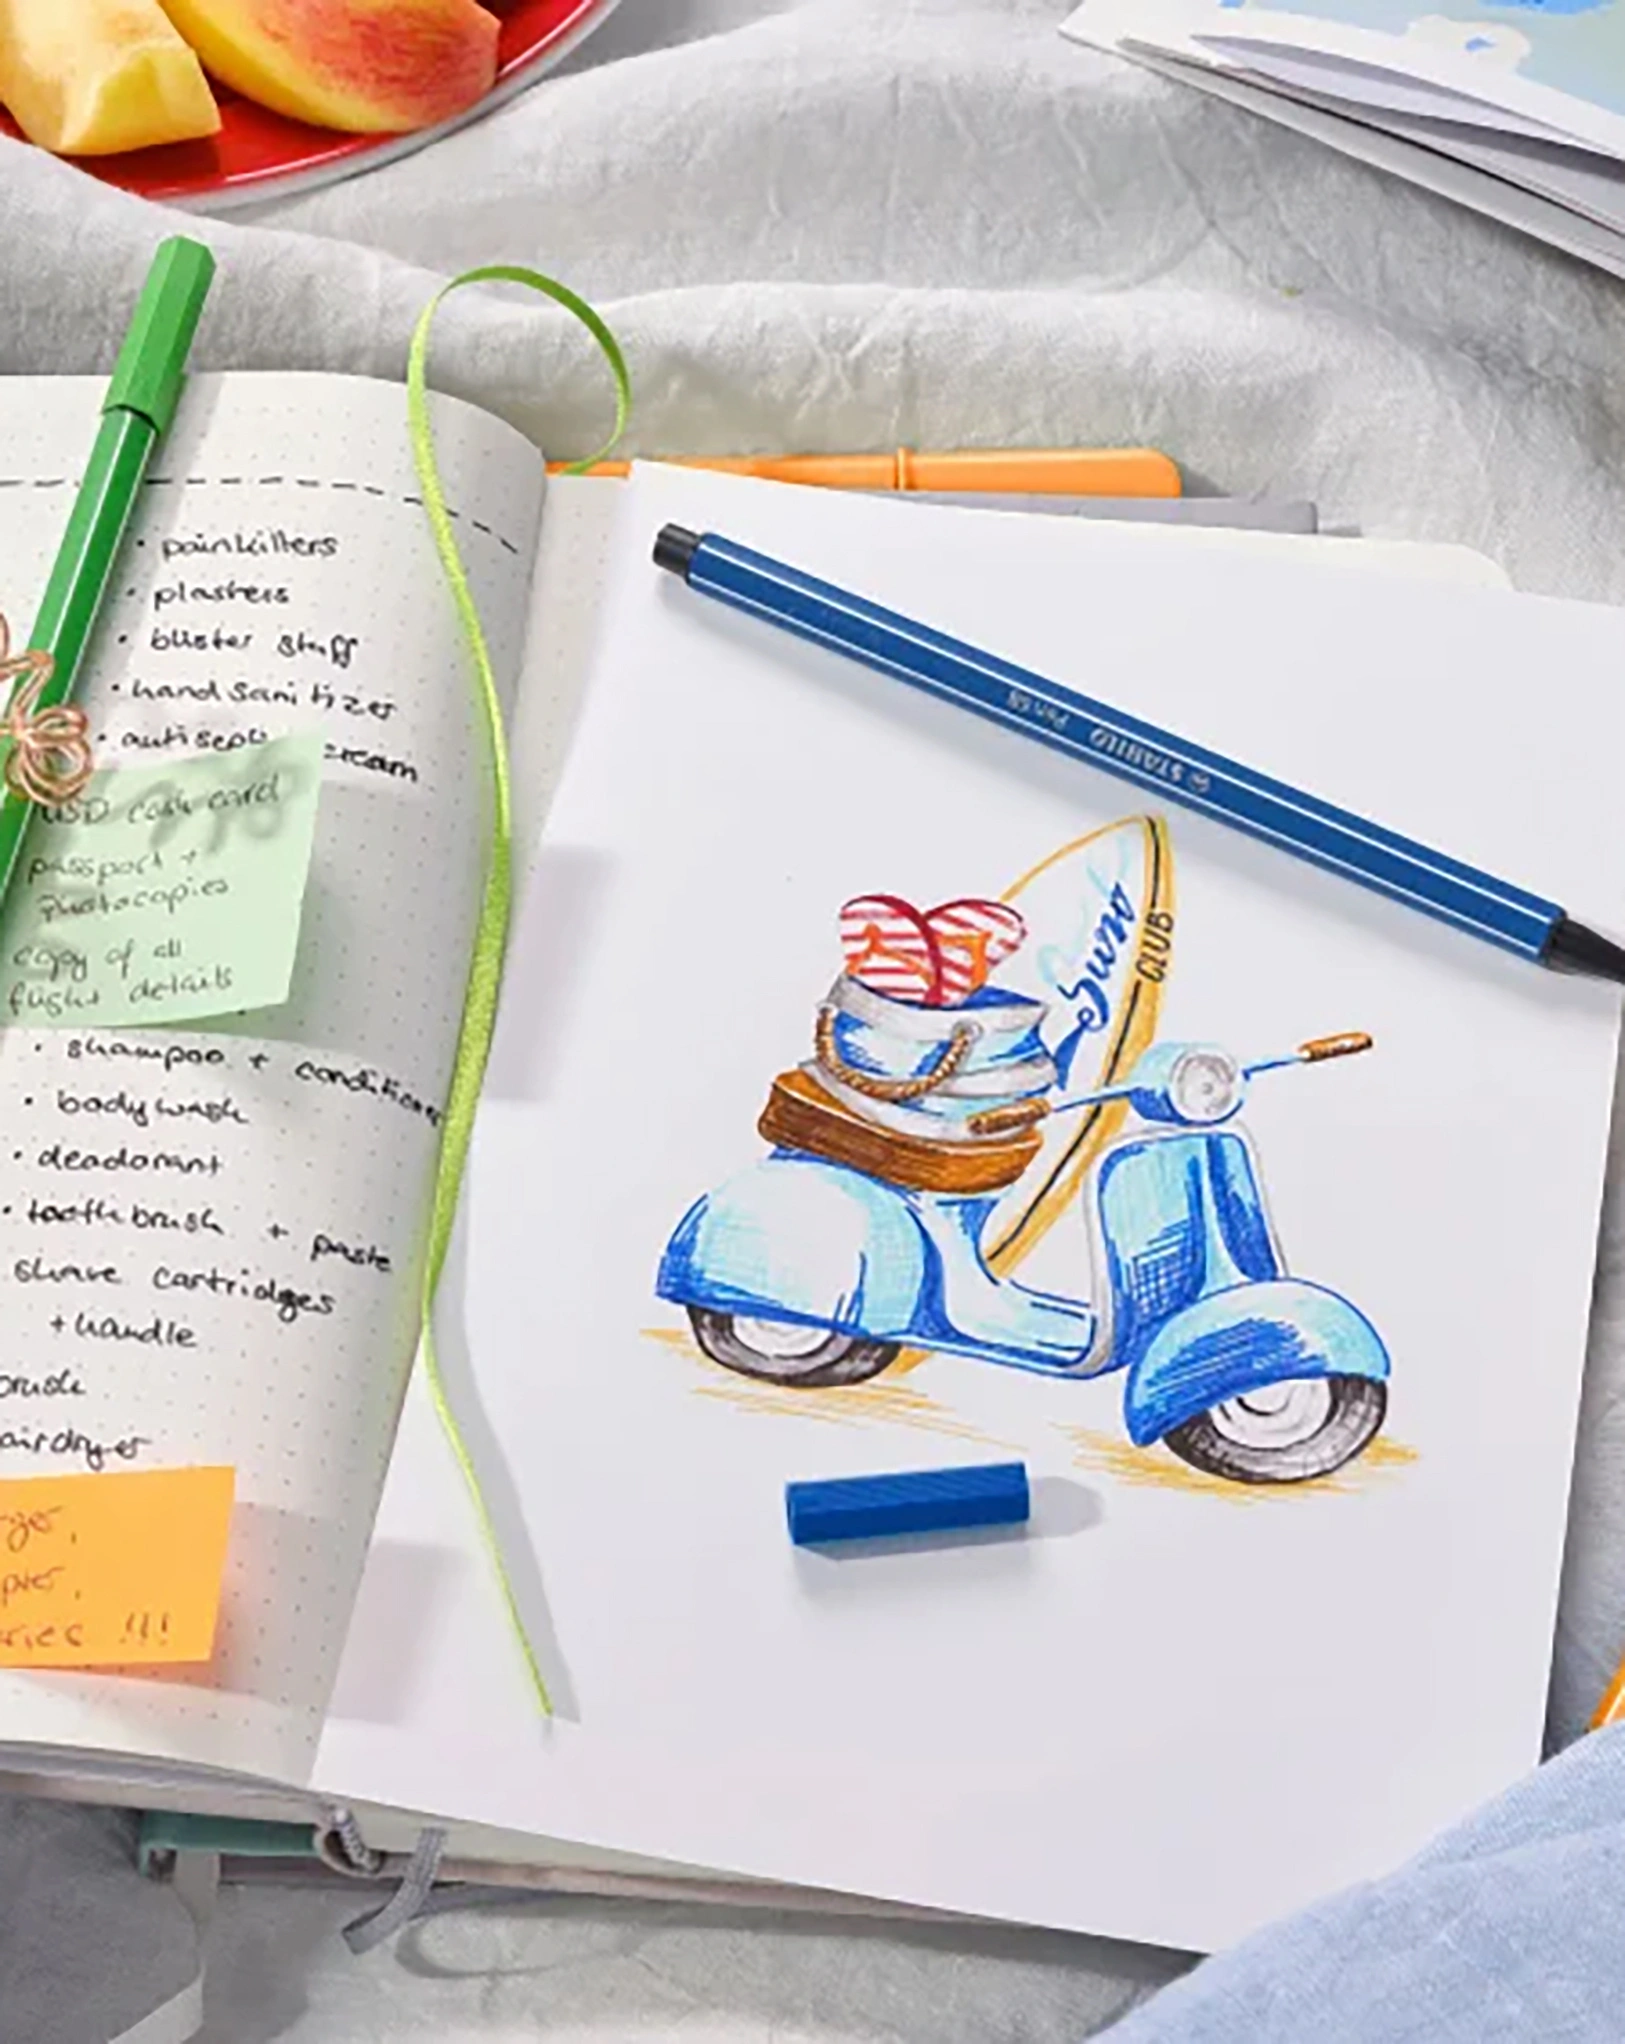 • painkillers
• plasters
• blister stuff
• hand sanitizer
• antisept cream
USD cash card
passport +
photocopies
copy of all
flight details
• shampoo + conditioner
• bodywash
• deodorant
• toothbrush + paste
shave cartridges
+ handle
STABILO Pen 68
Surf
CLUB
!!!